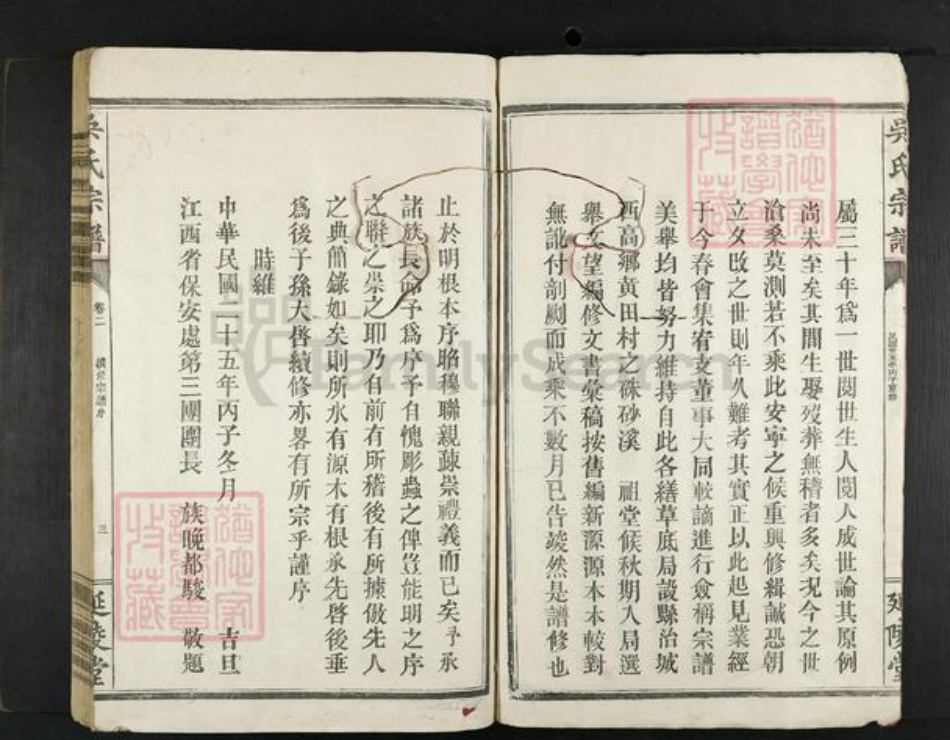 吳氏宗譜
延陵堂
屬三十年為一世閱世生人閱人成世論其原例
尚未至矣其間生娶歿葬無稽者多矣况今之世
滄桑莫測若不乘此安寧之候重興修緝誠恐朝
立夕改之世則年久難考其實正以此起見業經
于今春會集宥支董事大同較謫進行僉稱宗譜
美舉均皆努力維持自此各繕草底局設縣治城
西高鄉黃田村之硃砂溪 祖堂候秋期入局選
舉文望編修文書彙稿按舊編新源源本本較對
無訛付剞劂而成乘不數月已告竣然是譜修也
止於明根本序昭穆聯親疎崇禮義而已矣予承
諸族長命予為序予自愧彫蟲之俾豈能明之序
之聯之崇之耶乃自前有所稽後有所據倣先人
之典簡錄如矣則所水有源木有根承先啓後垂
為後子孫大啓續修亦畧有所宗乎謹序
時維
中華民國二十五年丙子冬月 吉旦
江西省保安處第三團團長 族晚都駿 敬題
吳氏宗譜
卷二
三
延陵堂
FamilySearch